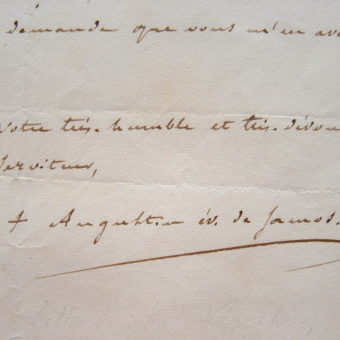 demande que vous m'en av
Votre très-humble et très-dévou
Serviteur,
+ Augustin év. de Samos.